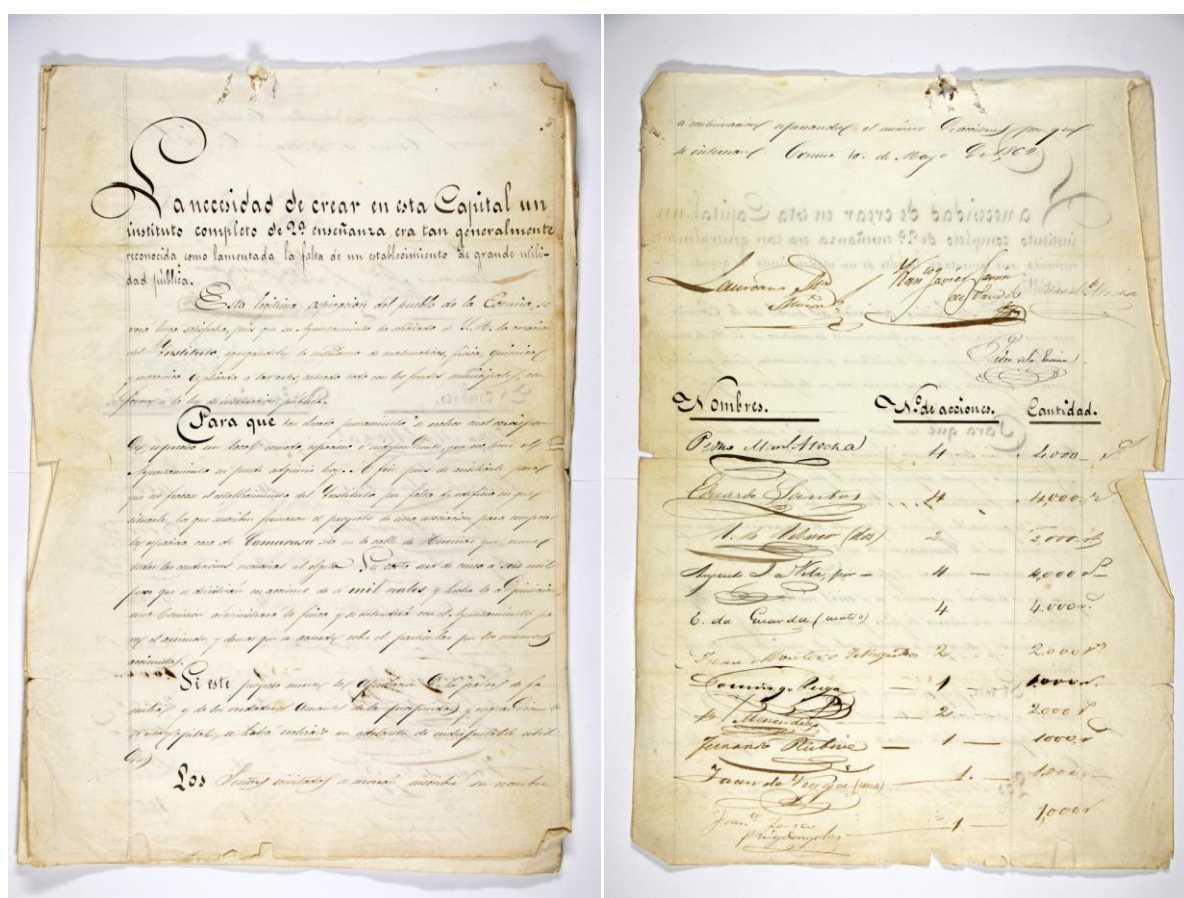 La necesidad de crear en esta Capital un
instituto completo de 2ª enseñanza era tan generalmente
reconocida como lamentada la falta de un establecimiento de grande utili-
dad pública.
Esta legítima aspiracion del pueblo de la Coruña, se
verá luego satisfecha, pues que su Ayuntamiento ha solicitado de S.M. la creacion
del Instituto, agregandole la enseñanza de matematicas, fisica, quimica
y mecanica aplicada á las artes, costeado todo con los fondos municipales, con
forme á la ley de instruccion pública.
Para que tan
es preciso un local comodo, espacioso é independiente, que no tiene el
Ayuntamiento ni puede adquirir hoy. A fin pues de auxiliarle para
que no fracase el establecimiento del Instituto por falta de edificio en que
situarle, los que suscriben formaron el proyecto de una asociacion para comprar
la espaciosa casa de Camarasa sita en la calle de que reune
todas las condiciones necesarias al objeto. Su costo será de cinco á seis mil
pesos que se dividirán en acciones de á mil reales y hecha la adquisicion
una Comision administrará la finca y se entenderá con el Ayuntamiento pa
ra el arriendo, y demas que se acuerde sobre el particular por los mismos
accionistas.
Si este proyecto merece la de los padres de fa
milia y de los verdaderos amantes de la prosperidad y
de esta Capital, se habrá realizado un adelanto de indisputable utili
dad.
Los Señores invitados se servirán inscribir su nombre
á continuacion expresando el número de acciones por que
se interesan. Coruña 10 de Mayo de 1862
Laureano Mª
Muñoz
Juan de la
Nombres. Nº de acciones. Cantidad.
Pedro Marl Atocha 4 4,000
Eduardo Santos 4 4,000 r
(dos) 2 2,000 r
Augusto J. de Vila, por 4 4,000 r
E. da Guarda (cuatro) 4 4.000 r
Juan Montero Telinge 2 2.000 r
Domingo Puga 1 1.000 r
Menendez 2 2.000 r
Fernando Rubine 1 1000 r
Juan de (una) 1. 1.000
1 1,000 r